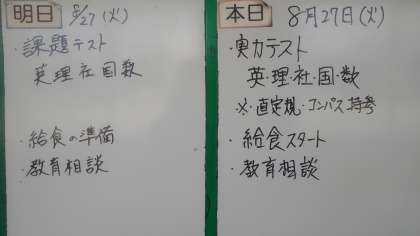 明日 8/27 (火)
・課題テスト
英理社国数
・給食の準備
・教育相談
本日 8月27日(火)
・実力テスト
英・理・社・国・数
※・直定規・コンパス持参
・給食スタート
・教育相談